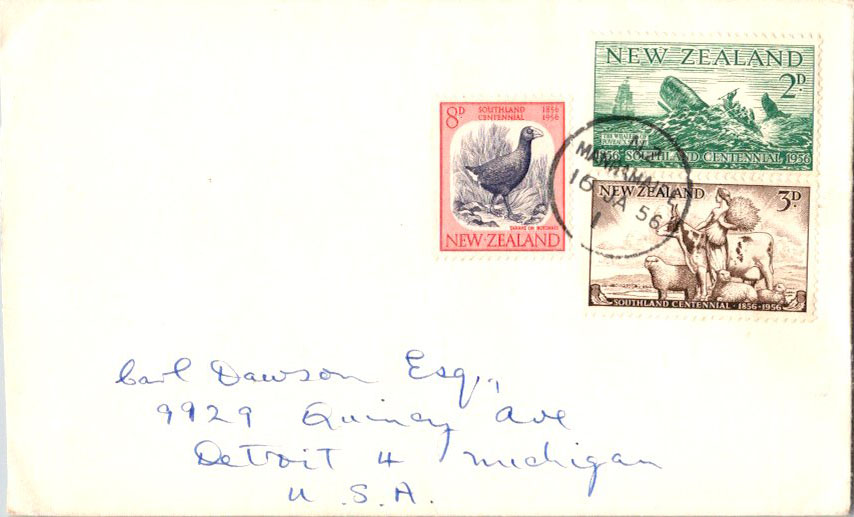 NEW ZEALAND
2D
1856 SOUTHLAND CENTENNIAL 1956
8D SOUTHLAND CENTENNIAL 1856 1956
TAKAHE OR NOTORNIS
NEW·ZEALAND
16 JA 56
1
NEW ZEALAND 3D
SOUTHLAND CENTENNIAL · 1856-1956
Carl Dawson Esq.,
9929 Quincy Ave
Detroit 4 Michigan
U.S.A.